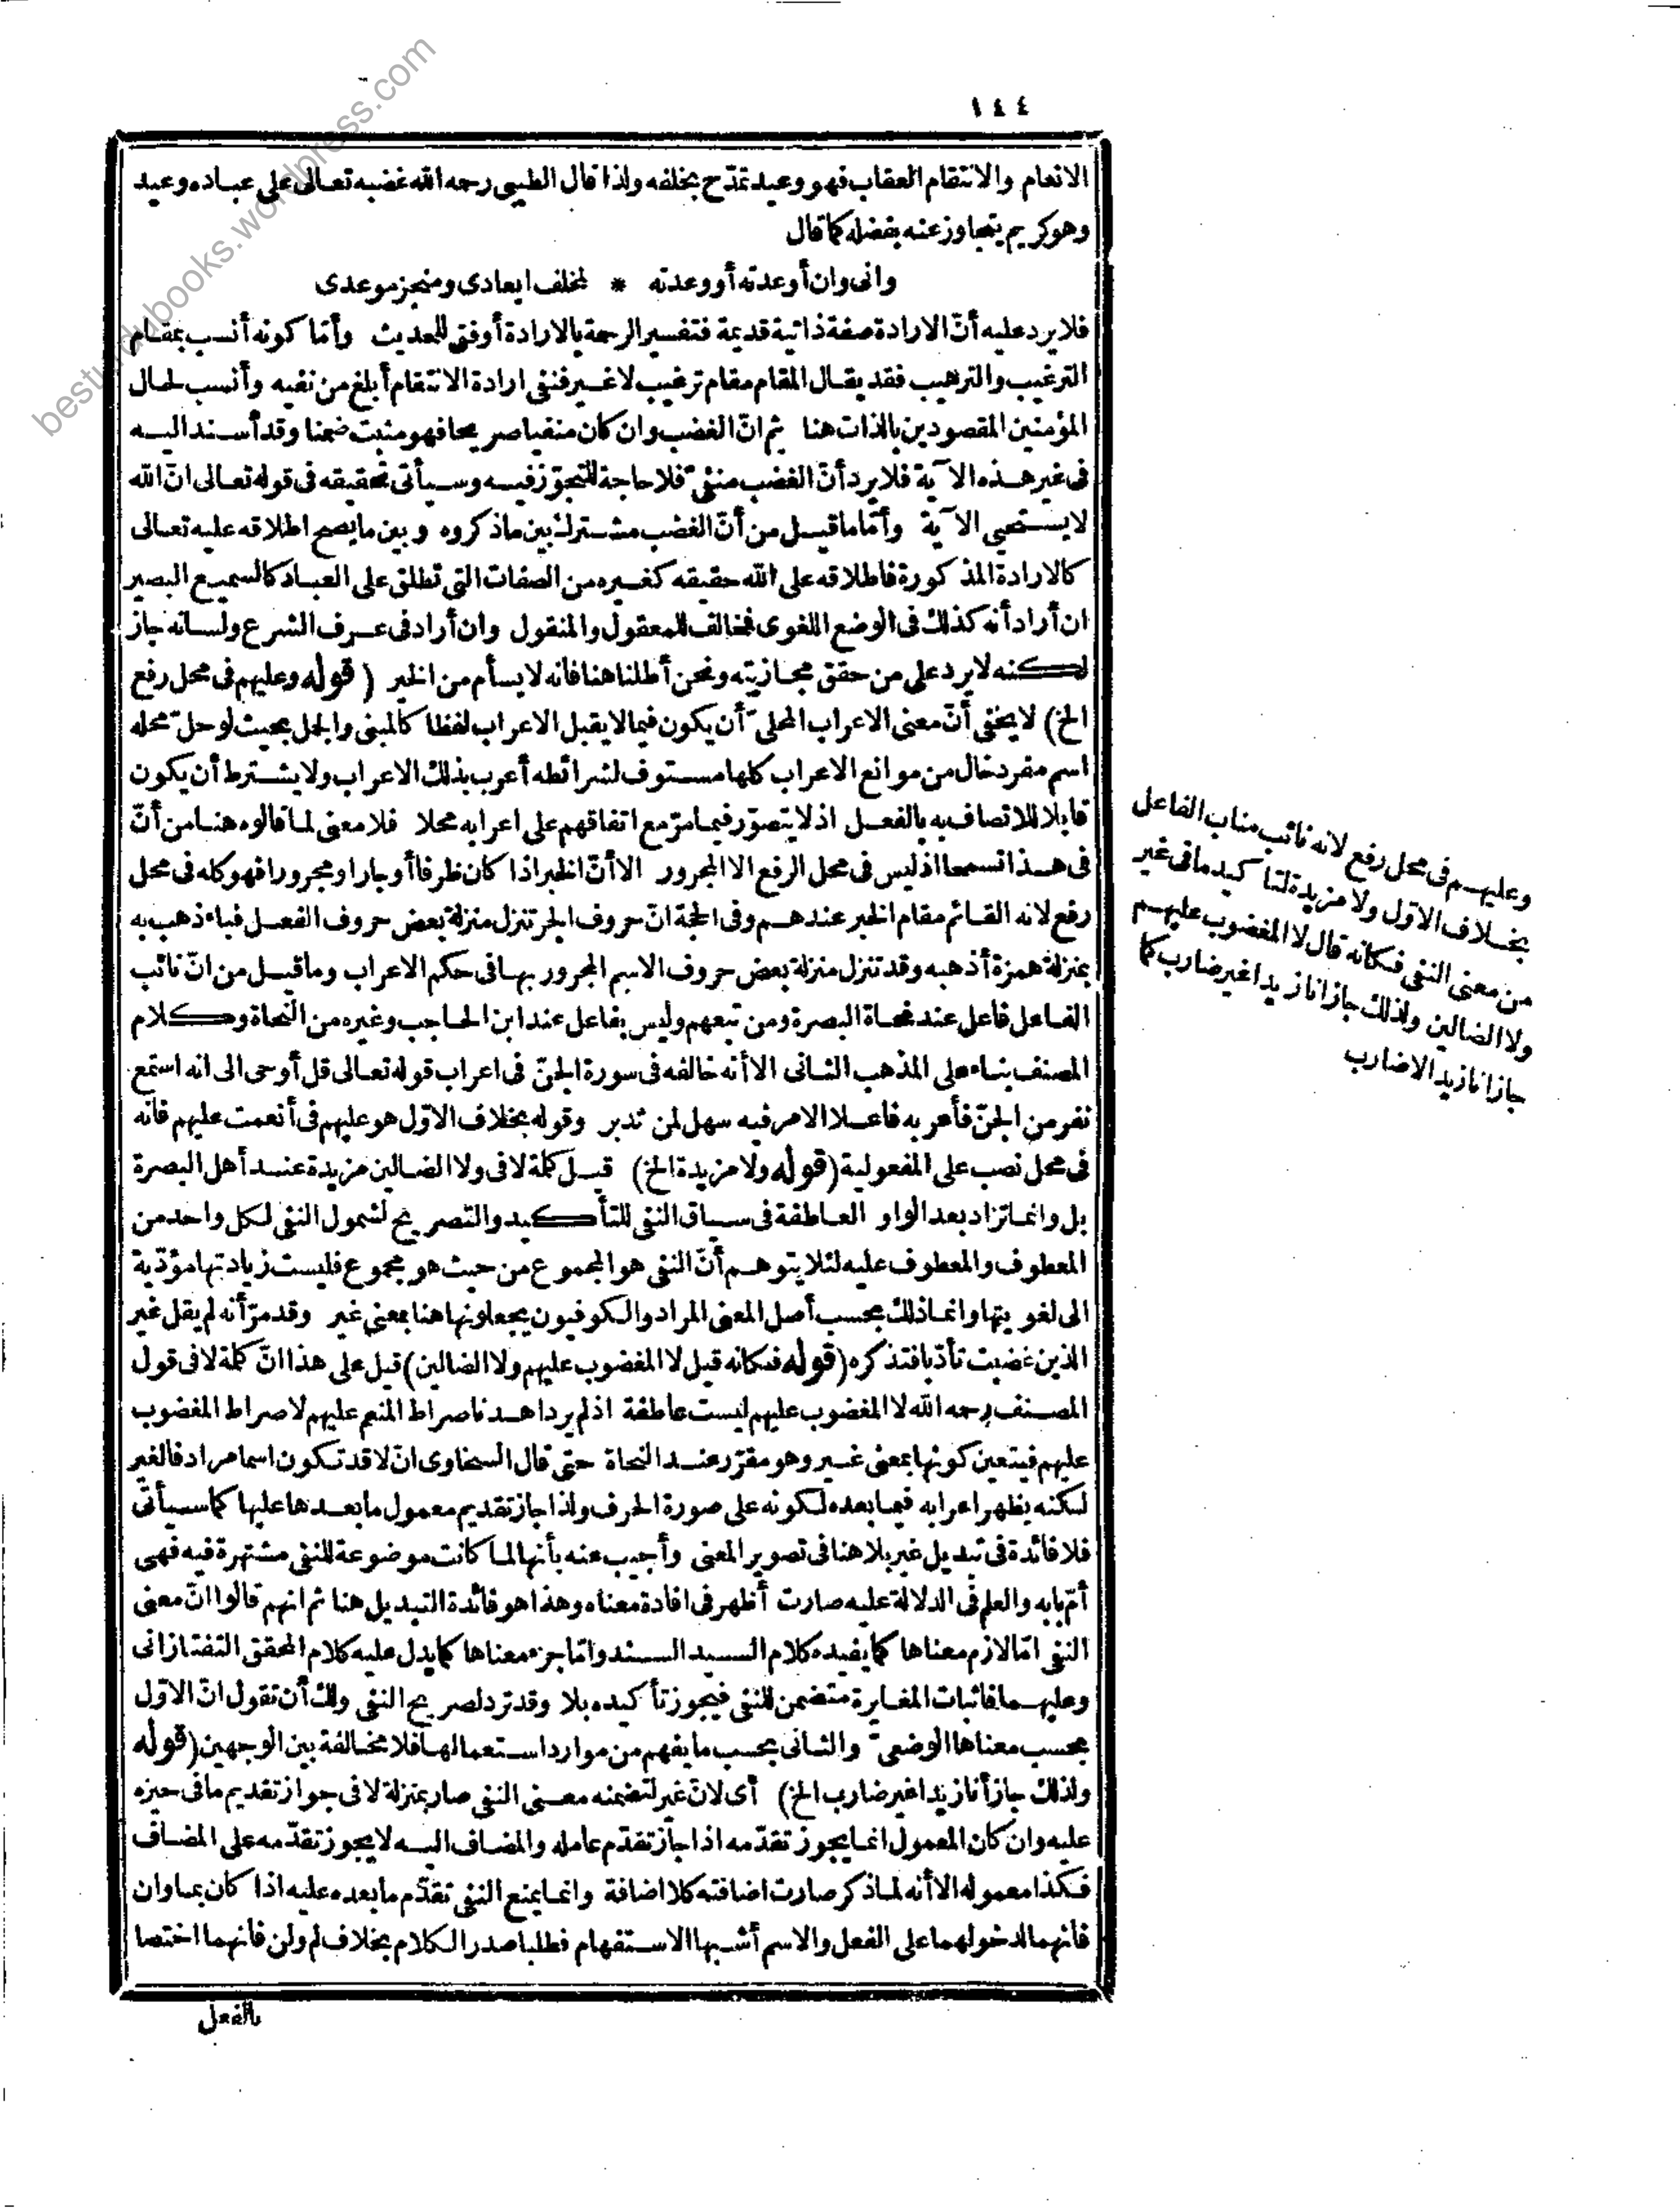 ١٤٤
الانعام والانتقام العقاب فهو وعيد تمدّح بخلفه ولذا قال الطيبى رحمه الله غضبه تعالى على عباده وعيد
وهو كريم يتجاوز عنه بفضله كما قال
وانى وان أوعدته أو وعدته * لمخلف ايعادى ومنجز موعدى
فلا يرد عليه أنّ الارادة صفة ذاتية قديمة فتفسير الرحمة بالارادة أوفق للحديث وأما كونه أنسب بمقام
الترغيب والترهيب فقد يقال المقام مقام ترغيب لا غير فنفى ارادة الانتقام أبلغ من نفيه وأنسب لحال
المؤمنين المقصودين بالذات هنا ثم انّ الغضب وان كان منفيا صريحا فهو مثبت ضمنا وقد أسند اليه
فى غير هذه الآية فلا يرد أنّ الغضب منفىّ فلا حاجة للتجوّز فيه وسيأتى تحقيقه فى قوله تعالى انّ الله
لا يستحيى الآية وأمّا ما قيل من أنّ الغضب مشترك بين ما ذكروه وبين ما يصح اطلاقه عليه تعالى
كالارادة المذكورة فاطلاقه على الله حقيقه كغيره من الصفات التى تطلق على العباد كالسميع البصير
ان أراد أنه كذلك فى الوضع اللغوى فمخالف للمعقول والمنقول وان أراد فى عرف الشرع ولسانه جاز
لكنه لا يرد على من حقق مجازيته ونحن أطلنا هنا فانه لا يسأم من الخير (قوله وعليهم فى محل رفع
الخ) لا يخفى أنّ معنى الاعراب المحلىّ أن يكون فيما لا يقبل الاعراب لفظا كالمبنى والجمل بحيث لو حلّ محله
اسم مفرد خال من موانع الاعراب كلها مستوف لشرائطه أعرب بذلك الاعراب ولا يشترط أن يكون
قابلا للاتصاف به بالفعل اذ لا يتصوّر فيما مرّ مع اتفاقهم على اعرابه محلا فلا معنى لما قالوه هنا من أنّ
فى هذا تسمحا اذ ليس فى محل الرفع الا المجرور الا أنّ الخبر اذا كان ظرفا أو جارا ومجرورا فهو كله فى محل
رفع لانه القائم مقام الخبر عندهم وفى الحجة انّ حروف الجر تنزل منزلة بعض حروف الفعل فباء ذهب به
بمنزلة همزة أذهبه وقد تنزل منزلة بعض حروف الاسم المجرور بها فى حكم الاعراب وما قيل من انّ نائب
الفاعل فاعل عند نحاة البصرة ومن تبعهم وليس بفاعل عند ابن الحاجب وغيره من النحاة وكلام
المصنف بناء على المذهب الثانى الا أنه خالفه فى سورة الجنّ فى اعراب قوله تعالى قل أوحى الى انه استمع
نفر من الجنّ فأعربه فاعلا الامر فيه سهل لمن تدبر وقوله بخلاف الاوّل هو عليهم فى أنعمت عليهم فانه
فى محل نصب على المفعولية (قوله ولا مزيدة الخ) قيل كلمة لا فى ولا الضالين مزيدة عند أهل البصرة
بل وانما تزاد بعد الواو العاطفة فى سياق النفى للتأكيد والتصريح لشمول النفى لكل واحد من
المعطوف والمعطوف عليه لئلا يتوهم أنّ النفى هو المجموع من حيث هو مجموع فليست زيادتها مؤدّية
الى لغويتها وانما ذلك بحسب أصل المعنى المراد والكوفيون يجعلونها هنا بمعنى غير وقد مرّ أنه لم يقل غير
الذين غضبت تأدّبا فتذكره (قوله فكانه قيل لا المغضوب عليهم ولا الضالين) قيل على هذا انّ كلمة لا فى قول
المصنف رحمه الله لا المغضوب عليهم ليست عاطفة اذ لم يرد اهدنا صراط المنعم عليهم لا صراط المغضوب
عليهم فيتعين كونها بمعنى غير وهو مقرّر عند النحاة حتى قال السخاوى انّ لا قد تكون اسما مرادفا لغير
لكنه يظهر اعرابه فيما بعده لكونه على صورة الحرف ولذا جاز تقديم معمول ما بعدها عليها كما سيأتى
فلا فائدة فى تبديل غير بلا هنا فى تصوير المعنى وأجيب عنه بأنها لما كانت موضوعة للنفى مشتهرة فيه فهى
أمّ بابه والعلم فى الدلالة عليه صارت أظهر فى افادة معناه وهذا هو فائدة التبديل هنا ثم انهم قالوا انّ معنى
النفى امّا لازم معناها كما يفيده كلام السيد السند وامّا جزء معناها كما يدل عليه كلام المحقق التفتازانى
وعليهما فاثبات المغايرة متضمن للنفى فيجوز تأكيده بلا وقد ترد لصريح النفى ولك أن تقول انّ الاوّل
بحسب معناها الوضعىّ والثانى بحسب ما يفهم من موارد استعمالها فلا مخالفة بين الوجهين (قوله
ولذلك جاز أنا زيدا غير ضارب الخ) أى لانّ غير لتضمنه معنى النفى صار بمنزلة لا فى جواز تقديم ما فى حيزه
عليه وان كان المعمول انما يجوز تقدّمه اذا جاز تقدّم عامله والمضاف اليه لا يجوز تقدّمه على المضاف
فكذا معموله الا أنه لما ذكر صارت اضافته كلا اضافة وانما يمنع النفى تقدّم ما بعده عليه اذا كان بما وان
فانهما لدخولهما على الفعل والاسم أشبها الاستفهام فطلبا صدر الكلام بخلاف لم ولن فانهما اختصا
بالفعل
وعليهم فى محل رفع لانه نائب مناب الفاعل
بخلاف الاوّل ولا مزيدة لتأكيد ما فى غير
من معنى النفى فكانه قال لا المغضوب عليهم
ولا الضالين ولذلك جاز انا زيدا غير ضارب كما
جاز انا زيدا لا ضارب
besturdubooks.wordpress.com